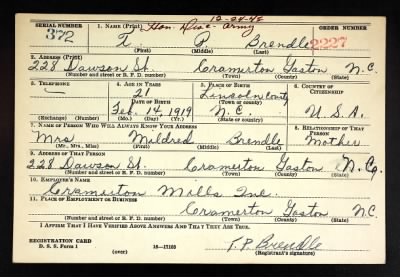 12-04-45
SERIAL NUMBER 1. NAME (Print) Hon Disc - Army ORDER NUMBER
372 T. P. Brendle 2227
(First) (Middle) (Last)
2. ADDRESS (Print)
228 Dawson St. Cramerton Gaston N.C.
(Number and street or R. F. D. number) (Town) (County) (State)
3. TELEPHONE 4. AGE IN YEARS 5. PLACE OF BIRTH 6. COUNTRY OF CITIZENSHIP
21 Lincoln County
DATE OF BIRTH (Town or county)
Feb. 14, 1919 N.C. U.S.A.
(Exchange) (Number) (Mo.) (Day) (Yr.) (State or country)
7. NAME OF PERSON WHO WILL ALWAYS KNOW YOUR ADDRESS 8. RELATIONSHIP OF THAT PERSON
Mrs Mildred Brendle Mother
(Mr., Mrs., Miss) (First) (Middle) (Last)
9. ADDRESS OF THAT PERSON
228 Dawson St. Cramerton Gaston N.C.
(Number and street or R. F. D. number) (Town) (County) (State)
10. EMPLOYER'S NAME
Cramerton Mills Inc.
11. PLACE OF EMPLOYMENT OR BUSINESS
Cramerton Gaston N.C.
(Number and street or R. F. D. number) (Town) (County) (State)
I AFFIRM THAT I HAVE VERIFIED ABOVE ANSWERS AND THAT THEY ARE TRUE.
REGISTRATION CARD
D. S. S. Form 1 (over) 16—17105 T.P. Brendle
(Registrant's signature)